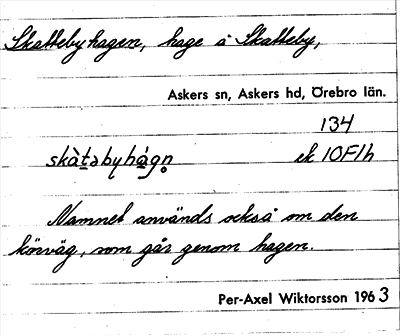 Skattebyhagen, hage å Skatteby,
Askers sn, Askers hd, Örebro län.
134
skàt̠əbyhág̠n̥ ek 10F1h
Namnet används också om den
körväg, som går genom hagen.
Per-Axel Wiktorsson 1963